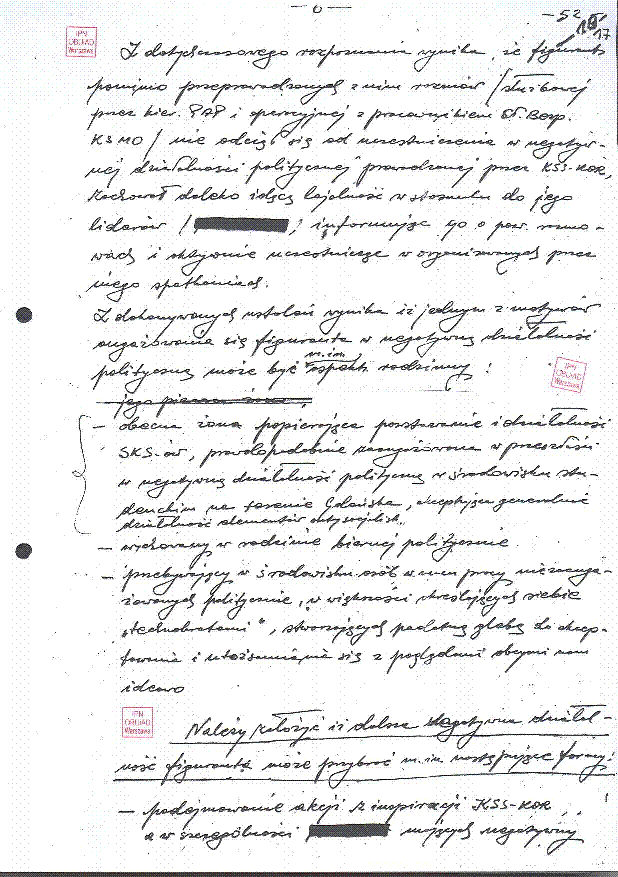 — 6 —
— 52
19
17
IPN
OBUIAD
Warszawa
Z dotychczasowego rozpoznania wynika, że figurant
pomimo przeprowadzonych z nim rozmów /służbowej
przez kier. PAP i operacyjnej z pracownikiem Sł. Bezp.
KSMO/ nie odciął się od uczestniczenia w negatyw-
nej działalności politycznej prowadzonej przez KSS-KOR,
zachował daleko idącą lojalność w stosunku do jego
liderów / / informując go o pow. rozmo-
wach i aktywnie uczestnicząc w organizowanych przez
niego spotkaniach.
Z dokonywanych ustaleń wynika iż jednym z motywów
angażowania się figuranta w negatywną działalność
polityczną może być m.in. aspekt rodzinny:
jego pierwsza żona,
— obecna żona popierająca powstawanie i działalność
SKS-ów, prawdopodobnie zaangażowana w przeszłości
w negatywną działalność polityczną w środowisku stu-
denckim na terenie Gdańska, akceptująca generalnie
działalność elementów antysocjalist.
— wychowany w rodzinie biernej politycznie
— przebywający w środowisku osób w m-cu pracy niezaanga-
żowanych politycznie, w większości określających siebie
"technokratami", stwarzających podatną glebę do akcep-
towania i utożsamiania się z poglądami obcymi nam
ideowo
IPN
OBUIAD
Warszawa
IPN
OBUIAD
Warszawa
Należy założyć iż dalsza negatywna działal-
ność figuranta może przybrać m.in. następujące formy:
— podejmowanie akcji z inspiracji KSS-KOR,
a w szczególności mających negatywny